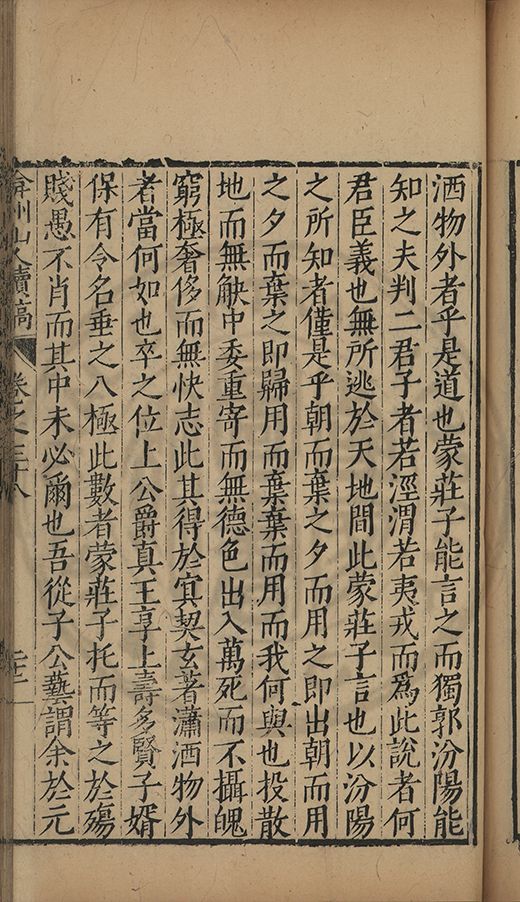 洒物外者乎是道也蒙莊子能言之而獨郭汾陽能
知之夫判二君子者若涇渭若夷戎而為此說者何
君臣義也無所逃於天地間此蒙莊子言也以汾陽
之所知者僅是乎朝而葉之夕而用之即出朝而用
之夕而棄之即歸用而棄棄而用而我何與也投散
地而無觖中委重寄而無德色出入萬死而不攝魄
窮極奢侈而無快志此其得於冥契玄著瀟洒物外
者當何如也卒之位上公爵真王享上壽多賢子婿
保有令名垂之八極此數者蒙莊子托而等之於殤
賤愚不肖而其中未必爾也吾從子公藝謂余於元
弇州山人續稿 卷之三十八 二十二